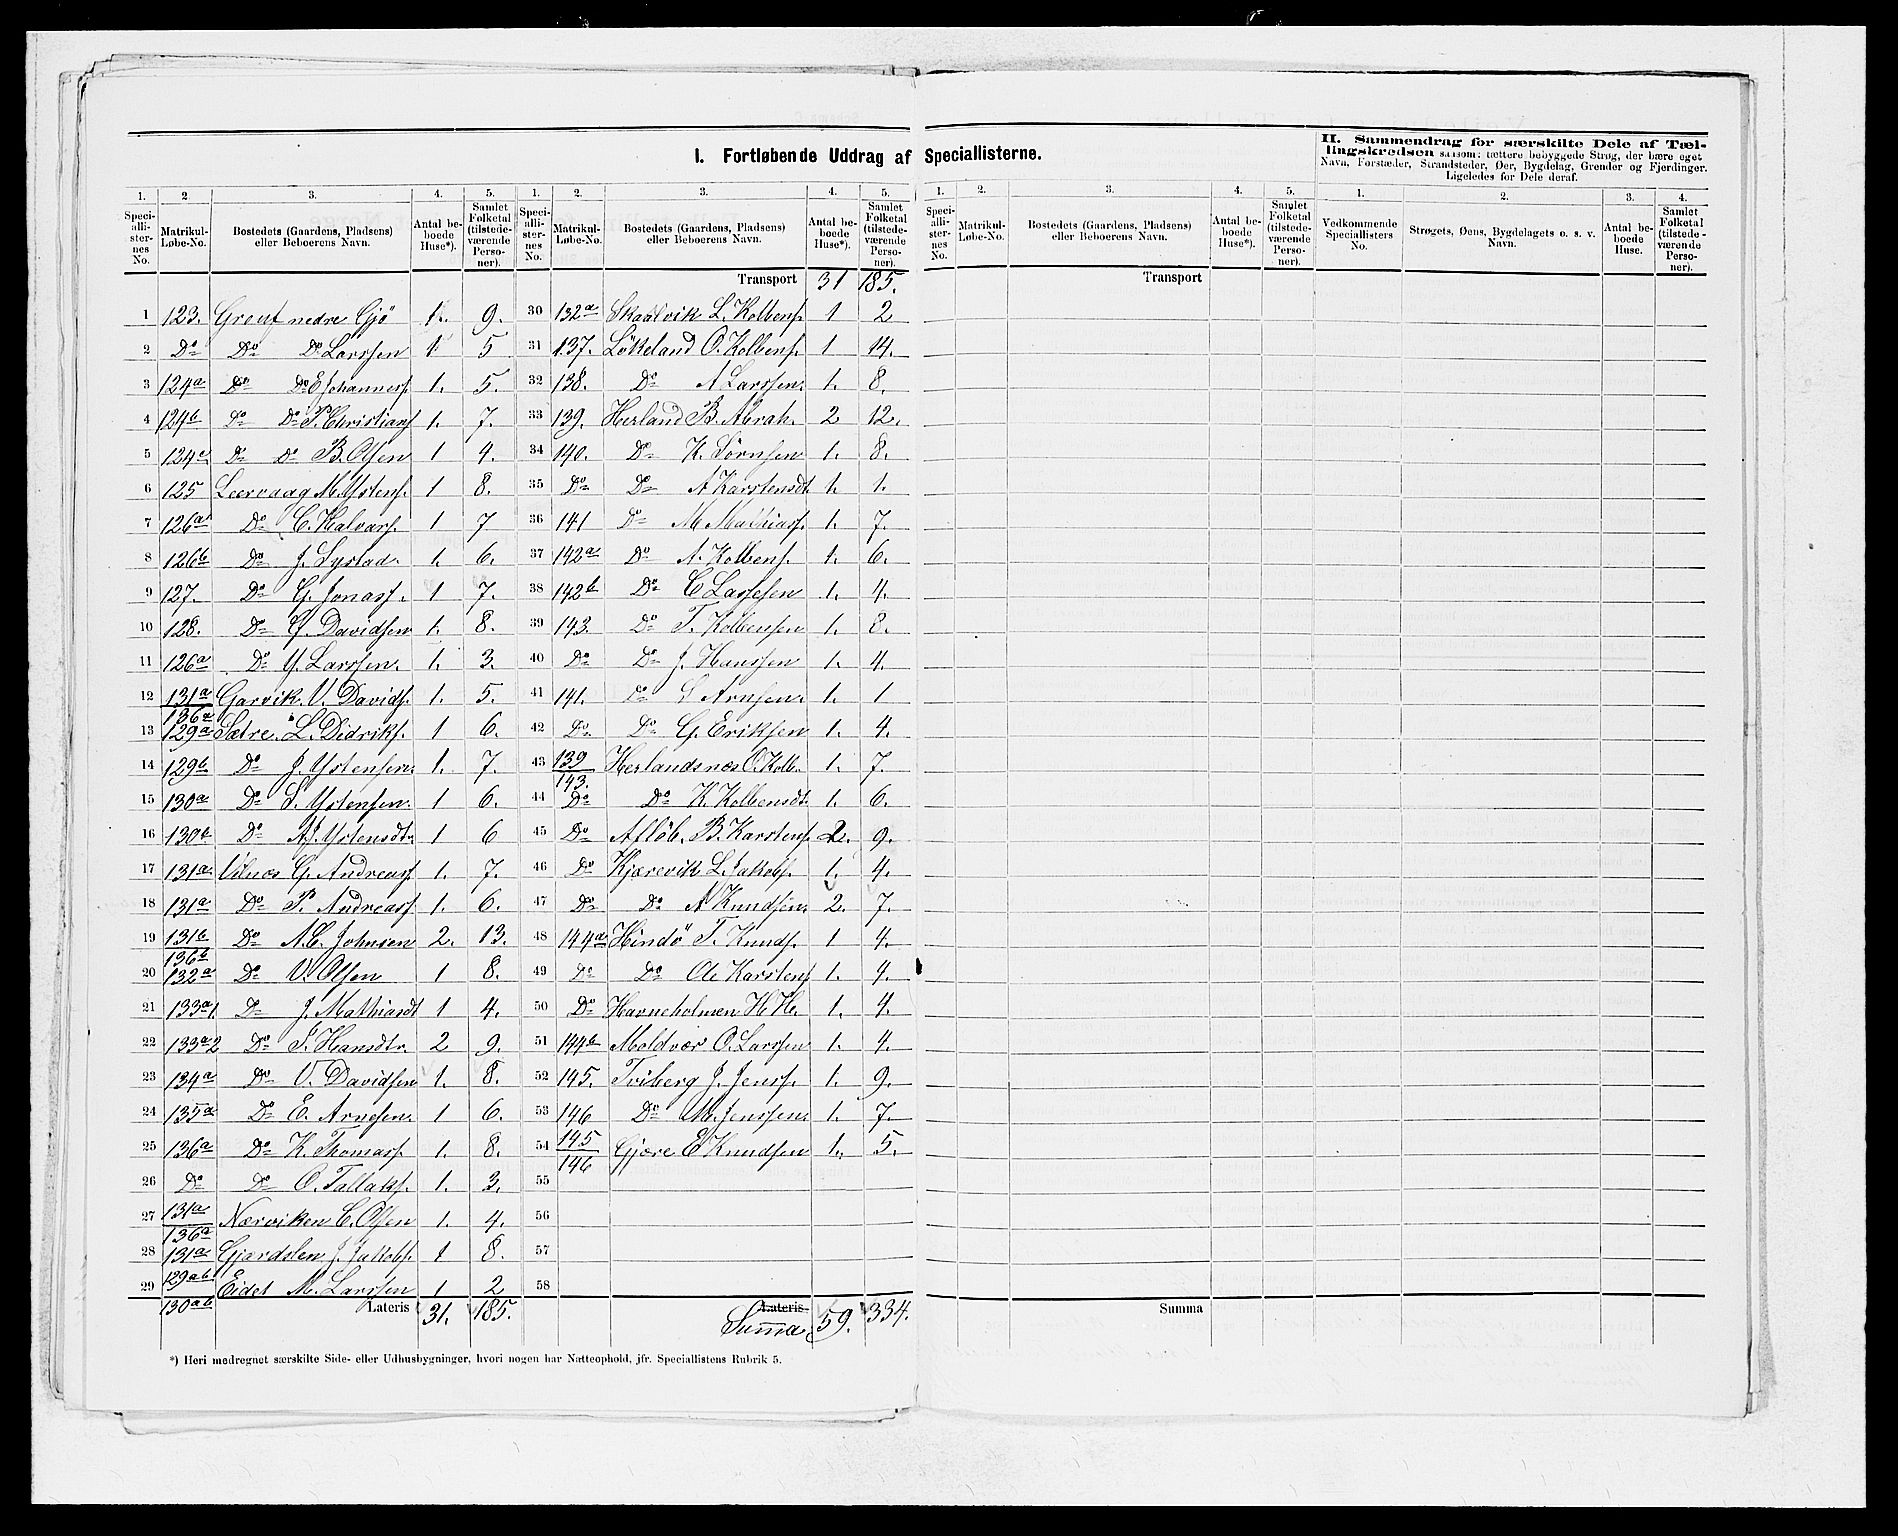 I. Fortløbende Uddrag af Speciallisterne.
II. Sammendrag for særskilte Dele af Tæl-
lingskredsen saasom: tættere bebyggede Strøg, der bære eget
Navn, Forstæder, Strandsteder, Øer, Bygdelag, Grender og Fjerdinger.
Ligeledes for Dele deraf.
1. 2 3. 4. 5. 1. 2. 3. 4. 5. 1. 2. 3. 4. 5. 1. 2. 3. 4.
Speciallisternes No. Matrikul-Løbe-No. Bostedets (Gaardens, Pladsens) eller Beboerens Navn. Antal beboede Huse*). Samlet Folketal (tilstedeværende Personer).
Speciallisternes No. Matrikul-Løbe-No. Bostedets (Gaardens, Pladsens) eller Beboerens Navn. Antal beboede Huse*). Samlet Folketal (tilstedeværende Personer).
Speciallisternes No. Matrikul-Løbe-No. Bostedets (Gaardens, Pladsens) eller Beboerens Navn. Antal beboede Huse*). Samlet Folketal (tilstedeværende Personer).
Vedkommende Speciallisters No. Strøgets, Øens, Bygdelagets o. s. v. Navn. Antal beboede Huse. Samlet Folketal (tilstedeværende Personer).
1 123. nedre Gjö 1. 9.
2 Do Do Do Larssen 1 5
3 124a Do Do E Johanness. 1. 5.
4 124b Do Do P. Christians 1. 7.
5 124c Do Do B. Olsen 1 4.
6 125 Leervaag M. Ystens. 1 8.
7 126a Do C. Halvars. 1 7
8 126b Do J. Systad. 1. 6.
9 127. Do G. Jonass. 1 7.
10 128. Do G. Davidsen 1. 8.
11 126a Do Y. Larssen. 1. 3.
12 131a 136a Garvik. V. Davids. 1. 5.
13 129a Sætre. L. Didriks. 1 6.
14 129b Do J. Ystensen. 1. 7.
15 130a Do S. Ystensen. 1 6.
16 130b Do Ystensdtr 1 6
17 131a Vilnæs G. Andreass. 1. 7.
18 131a Do P. Andreass. 1. 6.
19 131b 136b Do A.C. Johnsen 2. 13.
20 132a Do V. Olsen 1 8.
21 133a1. Do J. Mathiasdt 1 4.
22 133a2 Do Hansdtr. 2 9.
23 134a Do V. Davidsen 1. 8.
24 135a Do E. Arnesen. 1 6.
25 136a Do K. Thomass. 1. 8.
26 Do Do O. Tallaks. 1. 3.
27 131a 136a Nærviken C. Olsen 1. 4.
28 131a Gjærdslen J. Jakobs. 1 8.
29 129ab 130ab Eidet M. Larssen 1 2
Lateris 31. 185.
Transport 31 185.
30 132a Skaalvik L. Kolbens. 1 2
31 137. Lökeland O. Kolbens. 1 14.
32 138. Do A Larssen. 1. 8.
33 139. Herland B. Abrah. 2 12.
34 140. Do K. Sörnsen 1. 8.
35 Do Do A Karstensdt. 1. 1.
36 141 Do M Mathiass. 1. 7.
37 142a Do A. Kolbens. 1. 6.
38 142b Do C Lassesen 1. 4.
39 143. Do T. Kolbensen 1. 8.
40 Do Do J. Hanssen 1. 4.
41 141. Do Arnsen. 1. 1
42 Do Do G. Eriksen 1. 4.
43 139 143. Herlandsnæs O. Kolb. 1. 7.
44 Do Do K. Kolbensdt. 1. 6.
45 Do Aflöb. B. Karstens. 2. 9.
46 Do Kjærevik L. Jakobs. 1. 4.
47 Do Do A Knudsen. 2. 7.
48 144a Hindö T. Knuds. 1 4.
49 Do Do Ole Karstens 1. 4.
50 Do Havneholmen H. H. 1. 4.
51 144b Moldvær O. Larssen 1. 4.
52 145. Tviberg J. Jenss. 1. 9.
53 146 Do M. Jenssen. 1. 7.
54 145 146 Gjære E Knudsen 1. 5.
55
56
57
58
Lateris
Summa 59. 334.
Transport
Summa
*) Heri medregnet særskilte Side- eller Udhusbygninger, hvori nogen har Natteophold, jfr. Speciallistens Rubrik 5.